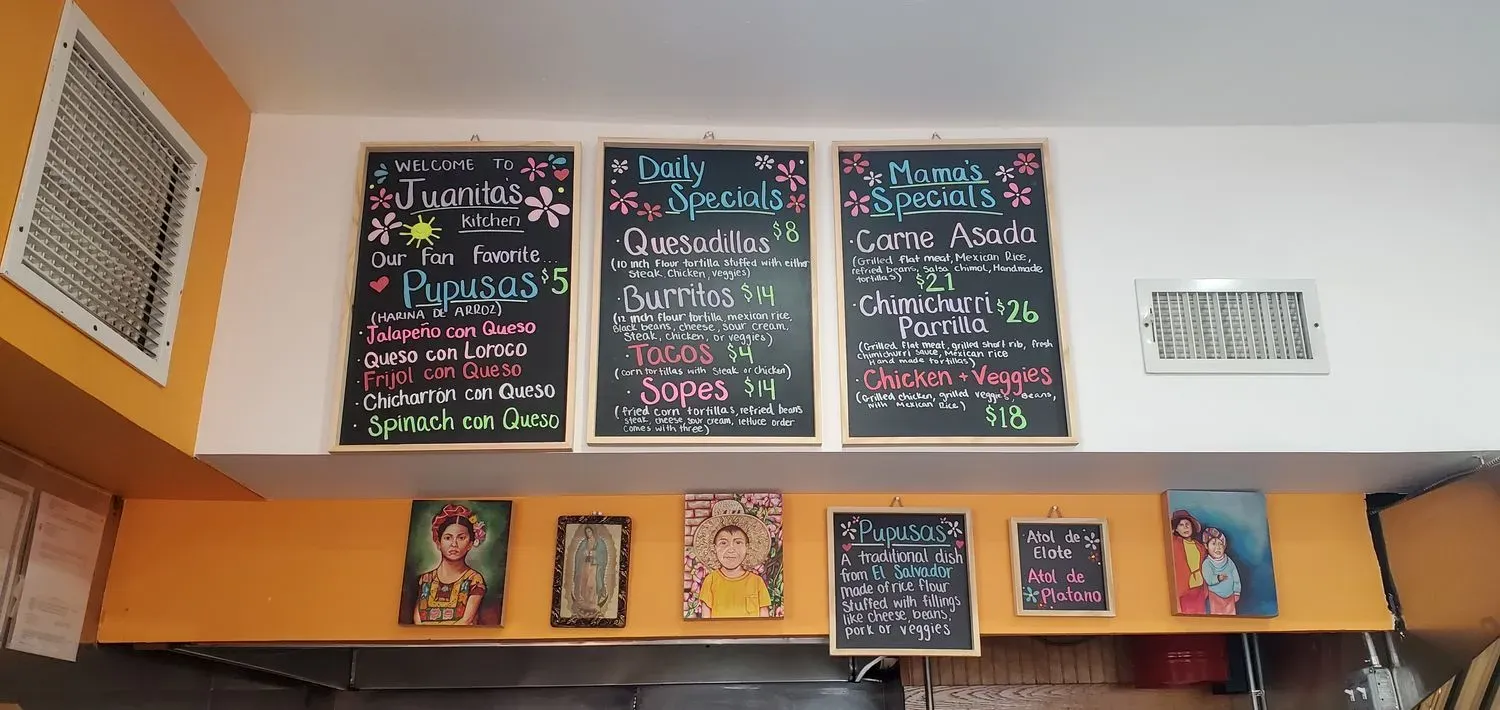 WELCOME TO
Juanitas
Kitchen
Our Fan Favorite...
Pupusas $5
(HARINA DE ARROZ)
· Jalapeño con Queso
· Queso con Loroco
· Frijol con Queso
· Chicharrón con Queso
· Spinach con Queso
Daily
Specials
· Quesadillas $8
(10 inch Flour tortilla stuffed with either
steak, chicken, veggies)
· Burritos $14
(12 inch flour tortilla, mexican rice,
Black beans, cheese, sour cream,
steak, chicken, or veggies)
· Tacos $4
(corn tortillas with steak or chicken)
· Sopes $14
(fried corn tortillas, refried beans
steak, cheese, sour cream, lettuce order
comes with three)
Mama's
Specials
· Carne Asada
(Grilled flat meat, Mexican Rice,
refried beans, salsa chimol, Handmade
tortillas) $21
· Chimichurri $26
Parrilla
(Grilled flat meat, grilled short rib, fresh
chimichurri sauce, Mexican rice
Hand made tortillas)
· Chicken + Veggies
(Grilled chicken, grilled veggies, Beans,
with Mexican Rice)
$18
Pupusas
A traditional dish
from El Salvador
made of rice flour
stuffed with fillings
like cheese, beans,
pork or veggies
Atol de
Elote
Atol de
Platano